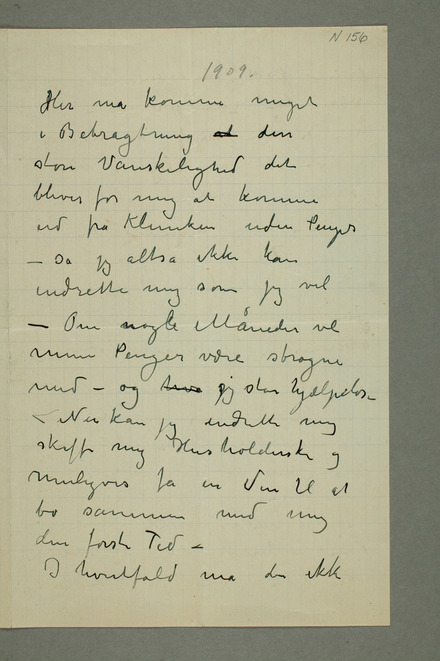 N 156
1909.
Her må komme meget
i Betragtning at den
store Vanskelighed det
bliver for mig at komme
ud fra Kliniken uden Penger
– så jeg altså ikke kan
indrette mig som jeg vil
– Om nogle Måneder vil
mine Penger være strøgne
med – og hvo jeg står hjælpeløs –
– Nu kan jeg indrette mig
skaffe mig Husholderske og
muligvis få en Ven til at
bo sammen med mig
den første Tid –
I hvertfald må der ikke